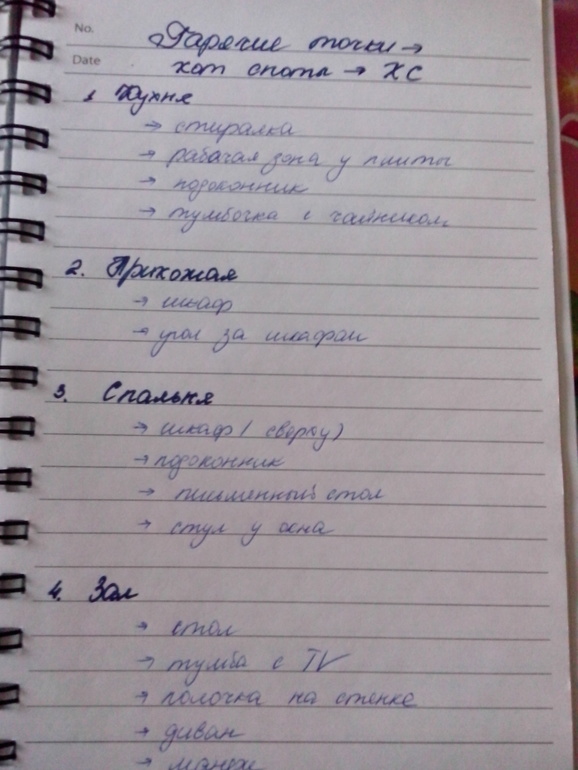 No.
Date
Гарячие точки →
хот споты → ХС
1 Кухня
→ стиралка
→ рабочая зона у плиты
→ подоконник
→ тумбочка с чайником
2. Прихожая
→ шкаф
→ угол за шкафом
3. Спальня
→ шкаф (сверху)
→ подоконник
→ письменный стол
→ стул у окна
4. Зал
→ стол
→ тумба с TV
→ полочка на стенке
→ диван
→ манеж